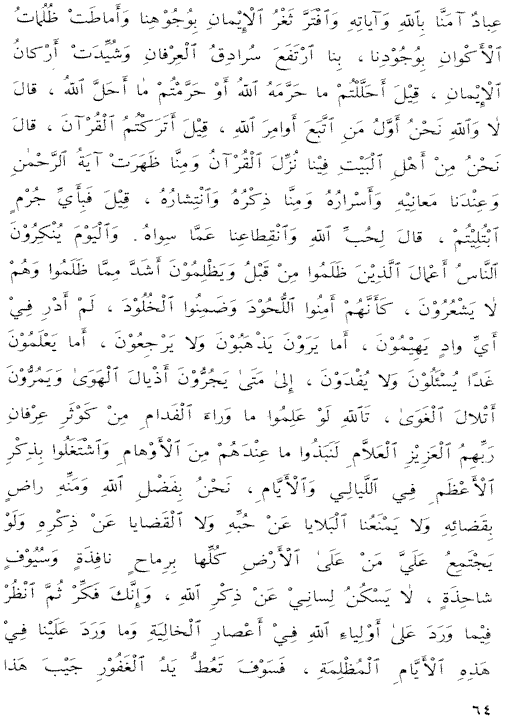 عِبادٌ آمَنَّا بِاللّٰهِ وَآياتِهِ وَٱفْتَرَّ ثَغْرُ ٱلْإِيْمانِ بِوُجُوْهِنا وَأَماطَتْ ظُلُماتُ
ٱلْأَكْوانِ بِوُجُوْدِنا، بِنا ٱرْتَفَعَ سُرادِقُ ٱلْعِرْفانِ وَشُيِّدَتْ أَرْكانُ
ٱلْإِيْمانِ ، قِيْلَ أَحَلَّلْتُمْ ما حَرَّمَهُ ٱللّٰهُ أَوْ حَرَّمْتُمْ مٰا أَحَلَّ ٱللّٰهُ ، قالَ
لا وَٱللّٰهِ نَحْنُ أَوَّلُ مَنِ ٱتَّبَعَ أَوامِرَ ٱللّٰهِ ، قِيْلَ أَتَرَكْتُمُ ٱلْقُرْآنَ ، قالَ
نَحْنُ مِنْ أَهْلِ ٱلْبَيْتِ فِيْنا نُزِّلَ ٱلْقُرْآنُ وَمِنَّا ظَهَرَتْ آيَةُ ٱلرَّحْمٰنِ
وَعِنْدَنا مَعانِيْهِ وَأَسْرارُهُ وَمِنَّا ذِكْرُهُ وَٱنْتِشارُهُ ، قِيْلَ فَبِأَيِّ جُرْمٍ
ٱبْتُلِيْتُمْ ، قالَ لِحُبِّ ٱللّٰهِ وَٱنْقِطاعِنا عَمَّا سِواهُ. وَٱلْيَوْمَ يُنْكِرُوْنَ
ٱلنَّاسُ أَعْمالَ ٱلَّذِيْنَ ظَلَمُوا مِنْ قَبْلُ وَيَظْلِمُوْنَ أَشَدَّ مِمَّا ظَلَمُوا وَهُمْ
لا يَشْعُرُوْنَ ، كَأَنَّهُمْ أَمِنُوا ٱللُّحُوْدَ وَضَمِنُوا ٱلْخُلُوْدَ ، لَمْ أَدْرِ فِيْ
أَيِّ وادٍ يَهِيْمُوْنَ ، أَما يَرَوْنَ يَذْهَبُوْنَ وَلا يَرْجِعُوْنَ ، أَما يَعْلَمُوْنَ
غَدًا يُسْئَلُوْنَ وَلا يُفْدَوْنَ ، إِلىٰ مَتىٰ يَجُرُّوْنَ أَذْيالَ ٱلْهَوىٰ وَيَمُرُّوْنَ
أَتْلالَ ٱلْغَوىٰ ، تَاللّٰهِ لَوْ عَلِمُوا ما وَراءَ ٱلْفَدامِ مِنْ كَوْثَرِ عِرْفانِ
رَبِّهِمُ ٱلْعَزِيْزِ ٱلْعَلَّامِ لَنَبَذُوا ما عِنْدَهُمْ مِنَ ٱلْأَوْهامِ وَٱشْتَغَلُوا بِذِكْرِ
ٱلْأَعْظَمِ فِي ٱللَّيالِي وَٱلْأَيَّامِ، نَحْنُ بِفَضْلِ ٱللّٰهِ وَمَنِّهِ راضٍ
بِقَضائِهِ وَلا يَمْنَعُنا ٱلْبَلايا عَنْ حُبِّهِ وَلا ٱلْقَضايا عَنْ ذِكْرِهِ وَلَوْ
يَجْتَمِعُ عَلَيَّ مَنْ عَلَىٰ ٱلْأَرْضِ كُلُّها بِرِماحٍ نافِذَةٍ وَسُيُوْفٍ
شاحِذَةٍ ، لا يَسْكُنُ لِسانِيْ عَنْ ذِكْرِ ٱللّٰهِ ، وَإِنَّكَ فَكِّرْ ثُمَّ ٱنْظُرْ
فِيْما وَرَدَ عَلىٰ أَوْلِياءِ ٱللّٰهِ فِيْ أَعْصارِ ٱلْخالِيَةِ وَما وَرَدَ عَلَيْنا فِيْ
هٰذِهِ ٱلْأَيَّامِ ٱلْمُظْلِمَةِ ، فَسَوْفَ تَعُطُّ يَدُ ٱلْغَفُوْرِ جَيْبَ هٰذا
٦٤